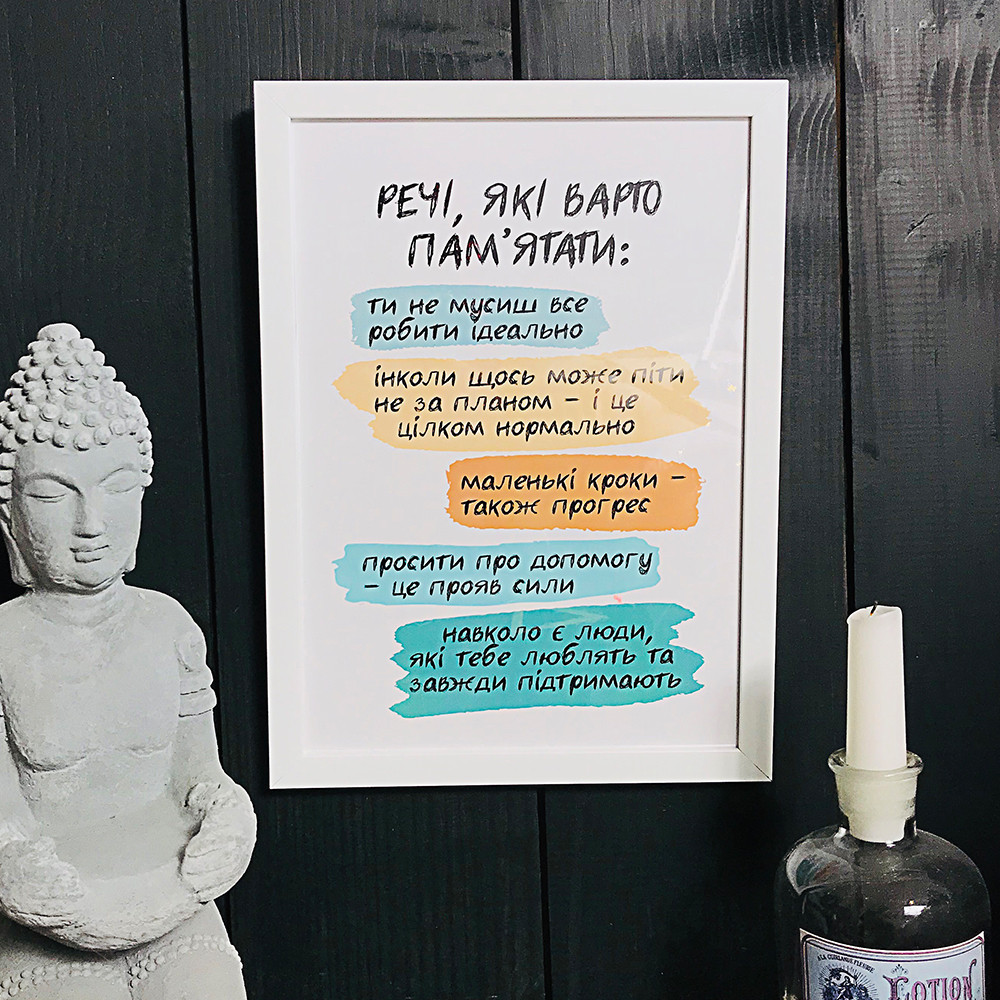 РЕЧІ, ЯКІ ВАРТО
ПАМ'ЯТАТИ:
ти не мусиш все
робити ідеально
інколи щось може піти
не за планом – і це
цілком нормально
маленькі кроки –
також прогрес
просити про допомогу
– це прояв сили
навколо є люди,
які тебе люблять та
завжди підтримають
LOTION